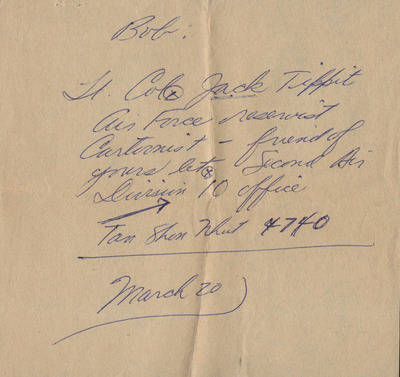 Bob:
Lt. Col. Jack Tippit
Air Force reservist
Cartoonist - friend of
yours Second Air
Division IO office
Tan Shon Nhut 4740
March 20